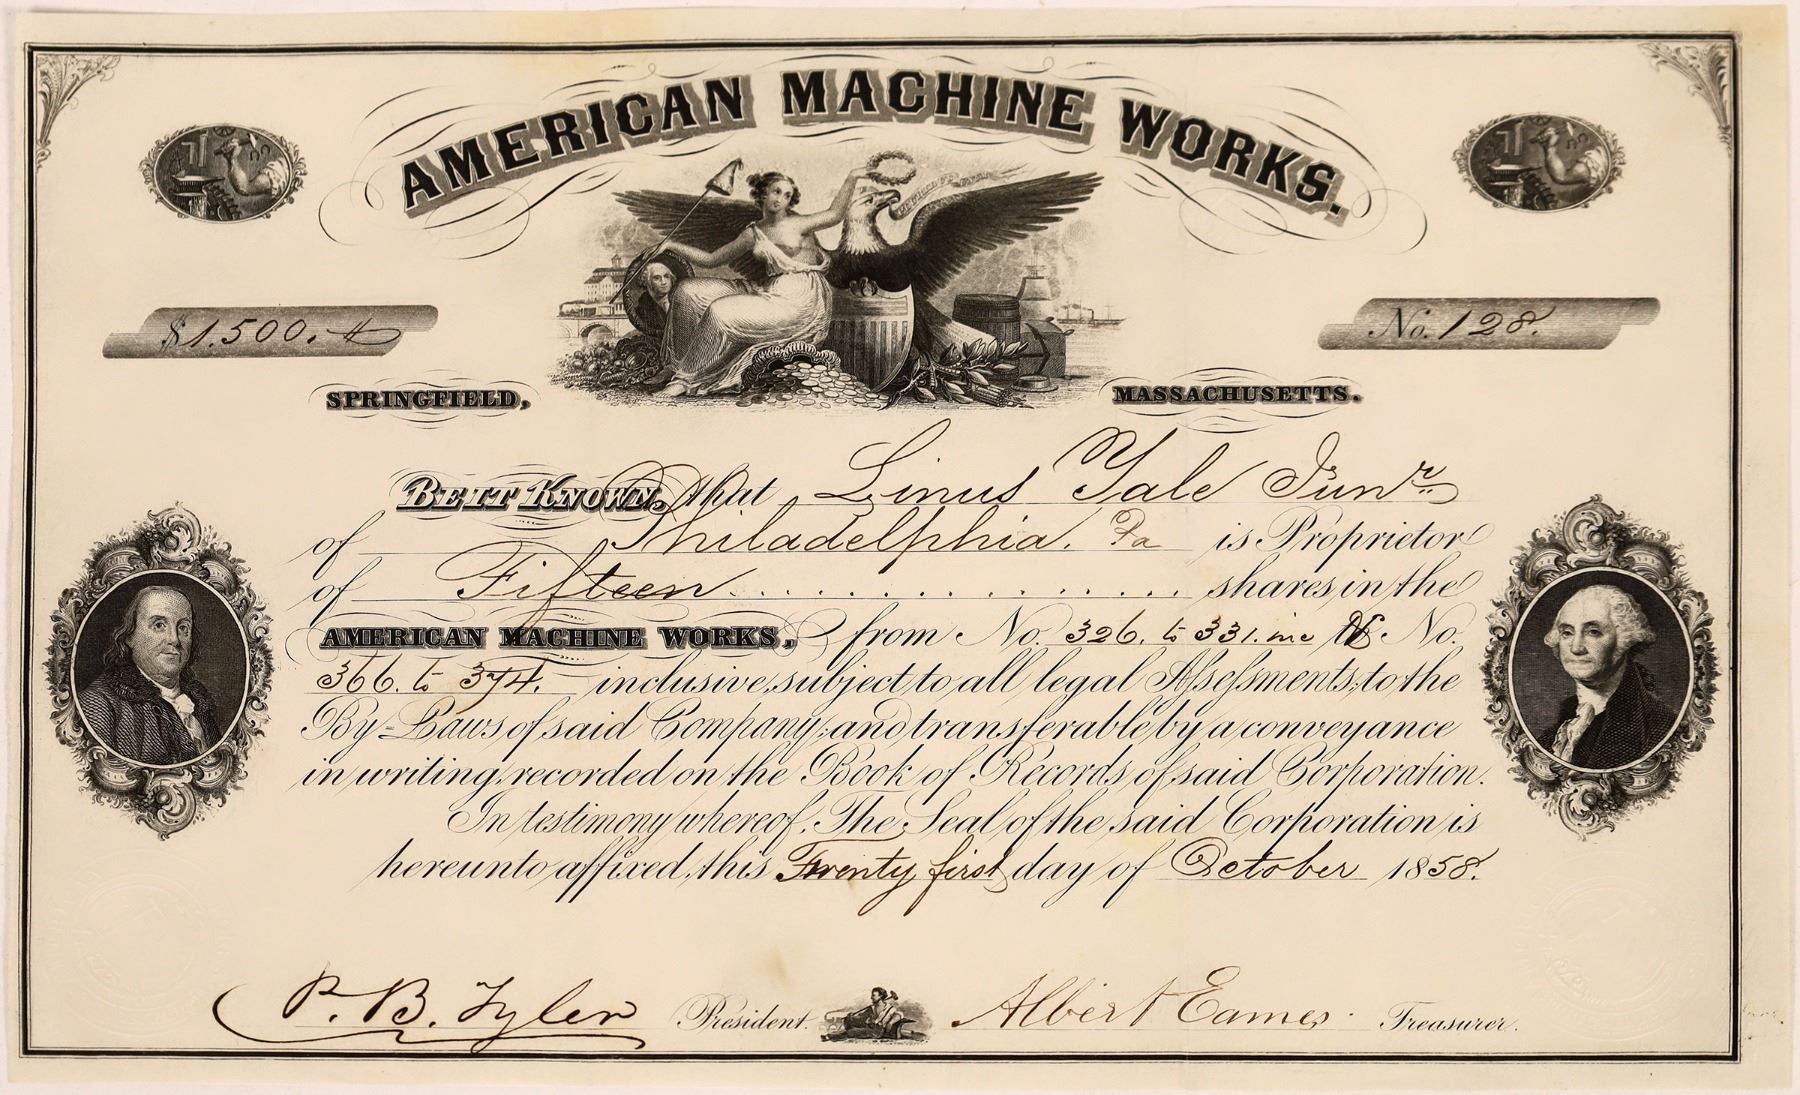 AMERICAN MACHINE WORKS.
$1.500.
No. 128.
SPRINGFIELD,
MASSACHUSETTS.
BE IT KNOWN, that Linus Yale Junr.
of Philadelphia. Pa is Proprietor
of Fifteen shares, in the
AMERICAN MACHINE WORKS, from No. 326. to 331. inc & No.
366. to 374. inclusive, subject to all legal Assessments, to the
By-Laws of said Company; and transferable by a conveyance
in writing, recorded on the Book of Records of said Corporation.
In testimony whereof, The Seal of the said Corporation is
hereunto affixed, this Twenty first day of October 1858.
P. B. Tyler President.
Albert Eames. Treasurer.